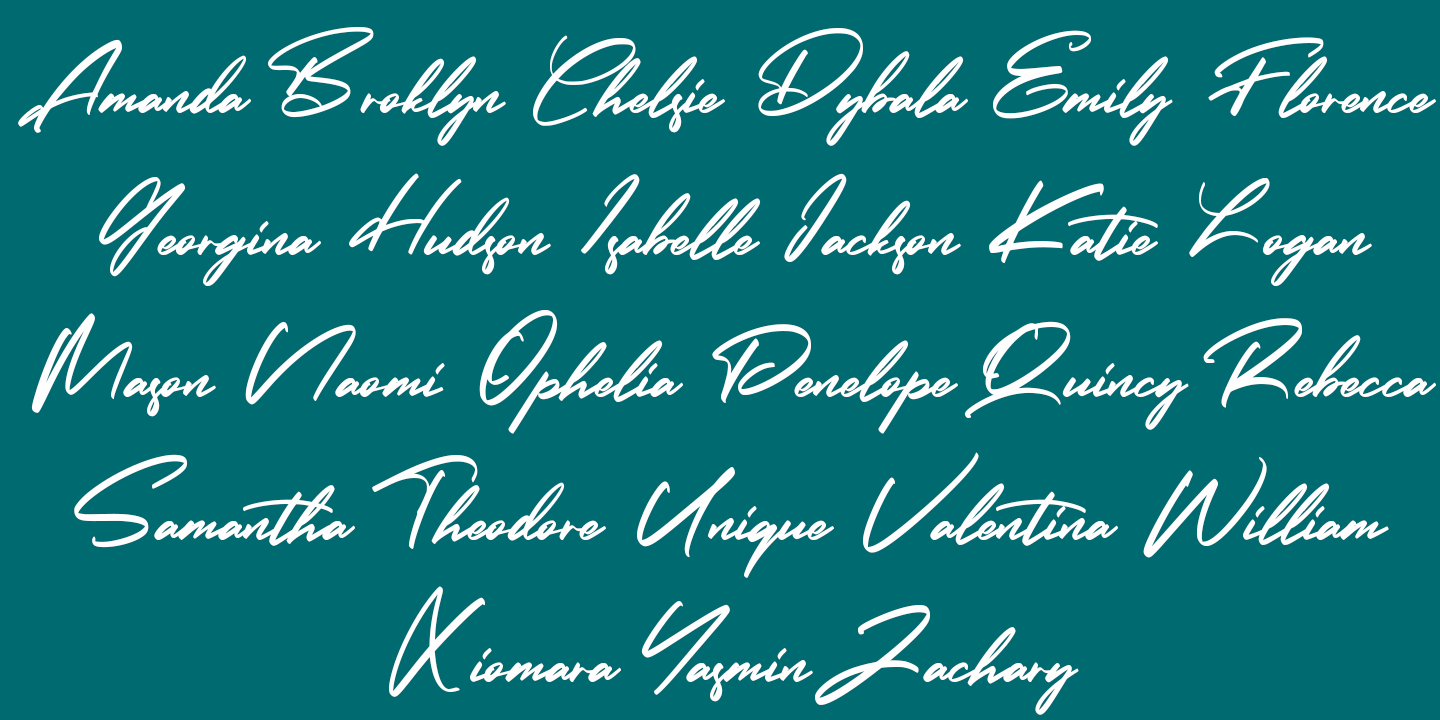 Amanda Broklyn Chelsie Dybala Emily Florence
Georgina Hudson Isabelle Jackson Katie Logan
Mason Naomi Ophelia Penelope Quincy Rebecca
Samantha Theodore Unique Valentina William
Xiomara Yasmin Zachary